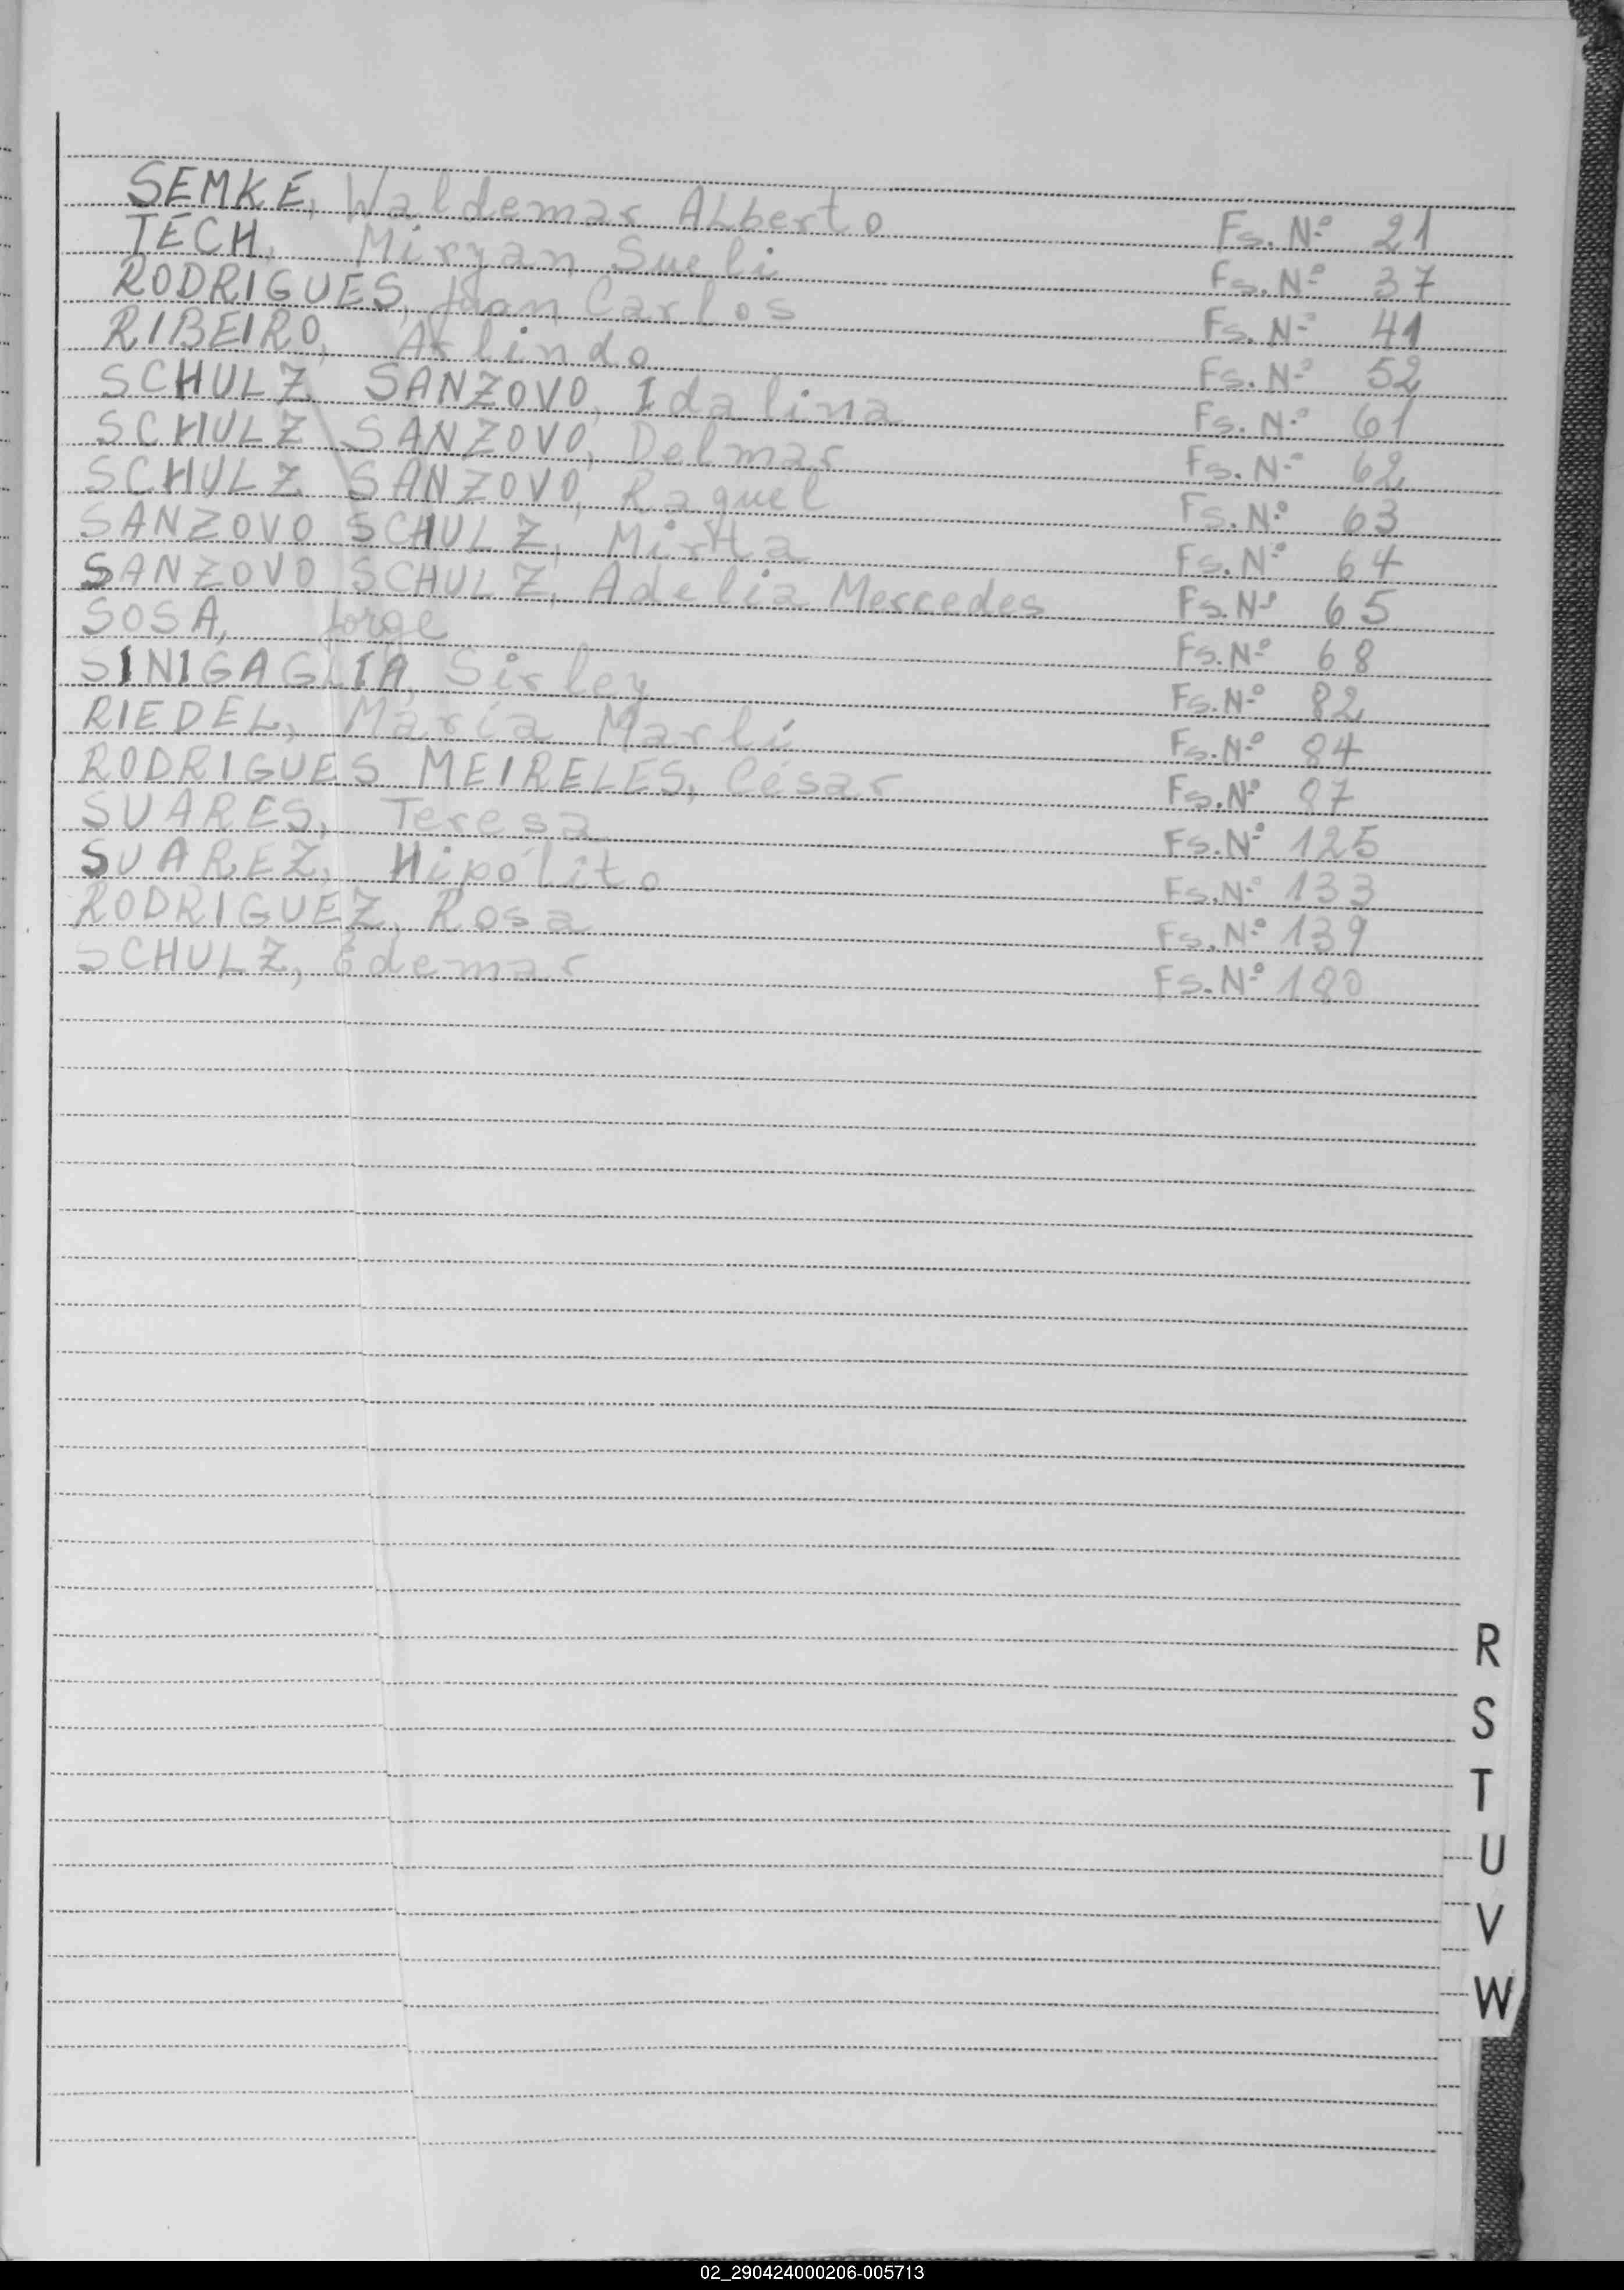 SEMKE, Waldemar ALberto Fs. Nº 21
TECH, Miryan Sueli Fs. Nº 37
RODRIGUES, Juan Carlos Fs. Nº 41
RIBEIRO, Arlindo Fs. Nº 52
SCHULZ SANZOVO, Idalina Fs. Nº 61
SCHULZ SANZOVO, Delmar Fs. Nº 62
SCHULZ SANZOVO, Raquel Fs. Nº 63
SANZOVO SCHULZ, Mirtta Fs. Nº 64
SANZOVO SCHULZ, Adelia Mercedes Fs. Nº 65
SOSA, Jorge Fs. Nº 68
SINIGAGLIA, Sirley Fs. Nº 82
RIEDEL, María Marli Fs. Nº 84
RODRIGUES MEIRELES, César Fs. Nº 87
SUARES, Teresa Fs. Nº 125
SUAREZ, Hipólito Fs. Nº 133
RODRIGUEZ, Rosa Fs. Nº 139
SCHULZ, Edemar Fs. Nº 180
R
S
T
U
V
W
02_290424000206-005713